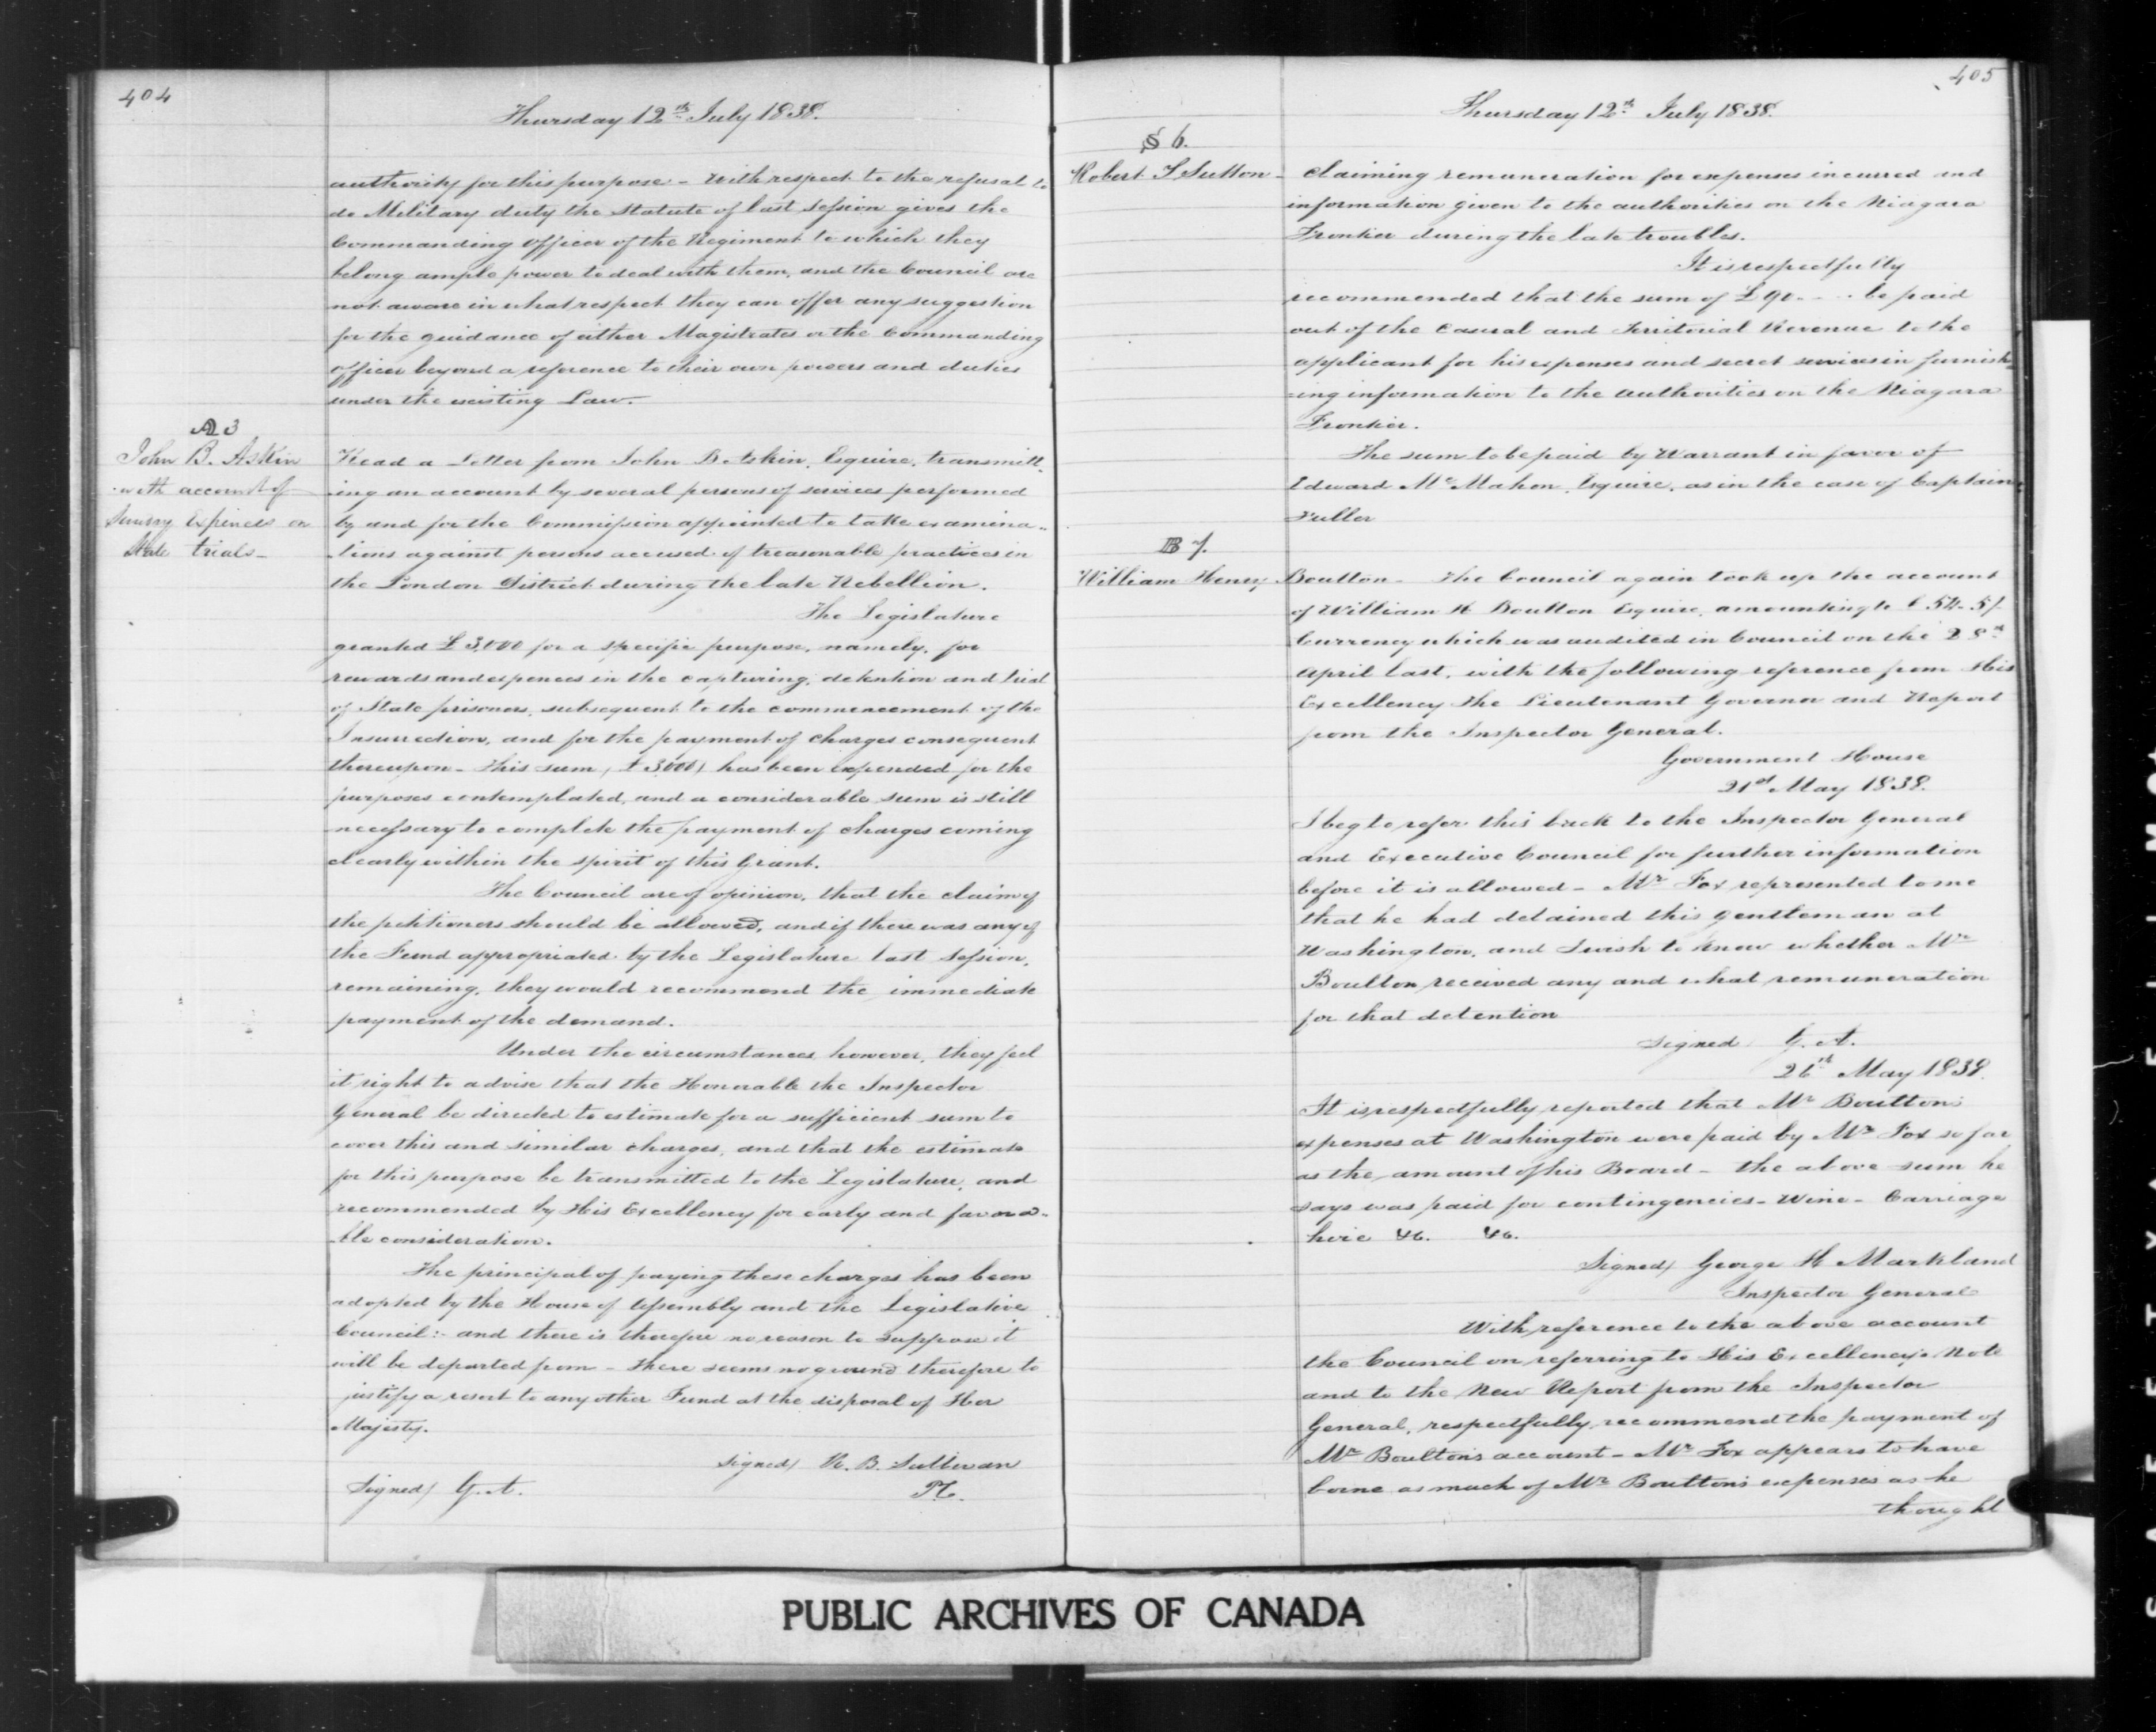 404
Thursday 12th July 1838.
authority for this purpose - With respect to the refusal to
do Military duty the Statute of last Session gives the
Commanding Officer of the Regiment to which they
belong ample power to deal with them, and the Council are
not aware in what respect they can offer any suggestion
for the guidance of either Magistrates or the Commanding
officer beyond a reference to their own powers and duties
under the existing Law.
A 3
John B. Askin
with account of
Sundry Expences on
State trials -
Read a Letter from John B. Askin, Esquire, transmitt-
ing an account by several persons of services performed
by and for the Commission appointed to take examina-
tions against persons accused of treasonable practices in
the London District during the late Rebellion.
The Legislature
granted £3,000 for a specific purpose, namely, for
rewards and expences in the capturing, detention and trial
of State prisoners, subsequent to the commencement of the
Insurrection, and for the payment of charges consequent
thereupon - This sum, (£3000) has been expended for the
purposes contemplated, and a considerable sum is still
necessary to complete the payment of charges coming
clearly within the spirit of this Grant.
The Council are of opinion, that the claim of
the petitioners should be allowed, and if there was any of
the Fund appropriated by the Legislature last Session,
remaining, they would recommend the immediate
payment of the demand.
Under the circumstances, however, they feel
it right to advise that the Honorable the Inspector
General be directed to estimate for a sufficient sum to
cover this and similar charges, and that the estimate
for this purpose be transmitted to the Legislature, and
recommended by His Excellency for early and favora-
ble consideration.
The principal of paying these charges has been
adopted by the House of Assembly and the Legislative
Council:- and there is therefore no reason to suppose it
will be departed from - There seems no ground therefore to
justify a resort to any other Fund at the disposal of Her
Majesty.
Signed/ R. B. Sullivan
Signed/ G. A.
405
Thursday 12th July 1838.
S 6.
Robert T Sutton - Claiming remuneration for expenses incurred and
information given to the authorities on the Niagara
Frontier during the late troubles.
It is respectfully
recommended that the sum of £90 - - . be paid
out of the Casual and Territorial Revenue to the
applicant for his expenses and secret services in furnish-
ing information to the authorities on the Niagara
Frontier.
The sum to be paid by Warrant in favor of
Edward McMahon, Esquire, as in the case of Captain
Fuller
B 7.
William Henry Boulton - The Council again took up the account
of William H Boulton Esquire, amounting to £54-5/-
Currency which was audited in Council on the 28th
April last, with the following reference from His
Excellency the Lieutenant Governor and Report
from the Inspector General.
Government House
21st May 1838.
I beg to refer this back to the Inspector General
and Executive Council for further information
before it is allowed - Mr Fox represented to me
that he had detained this gentleman at
Washington, and I wish to know whether Mr
Boulton received any and what remuneration
for that detention
Signed G. A.
26th May 1838.
It is respectfully reported that Mr Boulton's
expenses at Washington were paid by Mr Fox so far
as the amount of his Board - the above sum he
says was paid for contingencies - Wine - Carriage
hire &c. &c.
Signed/ George H Markland
Inspector General
With reference to the above account
the Council on referring to His Excellency's Note
and to the New Report from the Inspector
General, respectfully recommend the payment of
Mr Boulton's account - Mr Fox appears to have
borne as much of Mr Boulton's expenses as he
thought
PUBLIC ARCHIVES OF CANADA